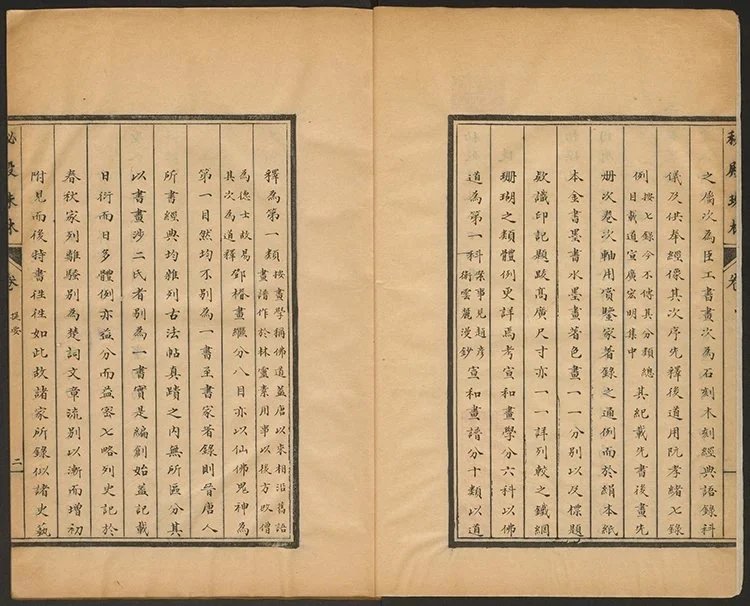 秘殿珠林 卷
之屬次為臣工書畫次為石刻木刻經典語錄科
儀及供奉經像其次序先釋後道用阮孝緒七錄
例按七錄今不傳其分類總目載道宣廣宏明集中其紀載先書後畫先
冊次卷次軸用賞鑒家著錄之通例而於絹本紙
本金書墨書水墨畫著色畫一一分別以及標題
款識印記題跋高廣尺寸亦一一詳列較之鐵網
珊瑚之類體例更詳焉考宣和畫學分六科以佛
道為第一科案事見趙彥衛雲麓漫鈔宣和畫譜分十類以道
釋為第一類按畫學稱佛道蓋唐以來相沿舊語畫譜作於林靈素用事以後方改僧
為德士故易其次為道釋鄧椿畫繼分八目亦以仙佛鬼神為
第一目然均不別為一書至書家著錄則晉唐人
所書經典均雜列古法帖真蹟之內無所區分其
以書畫涉二氏者別為一書實是編創始蓋記載
日衍而日多體例亦益分而益密七略列史記於
春秋家列離騷別為楚詞文章流別以漸而增初
附見而後特書往往如此故諸家所錄似諸史藝
秘殿珠林 卷 提要 二